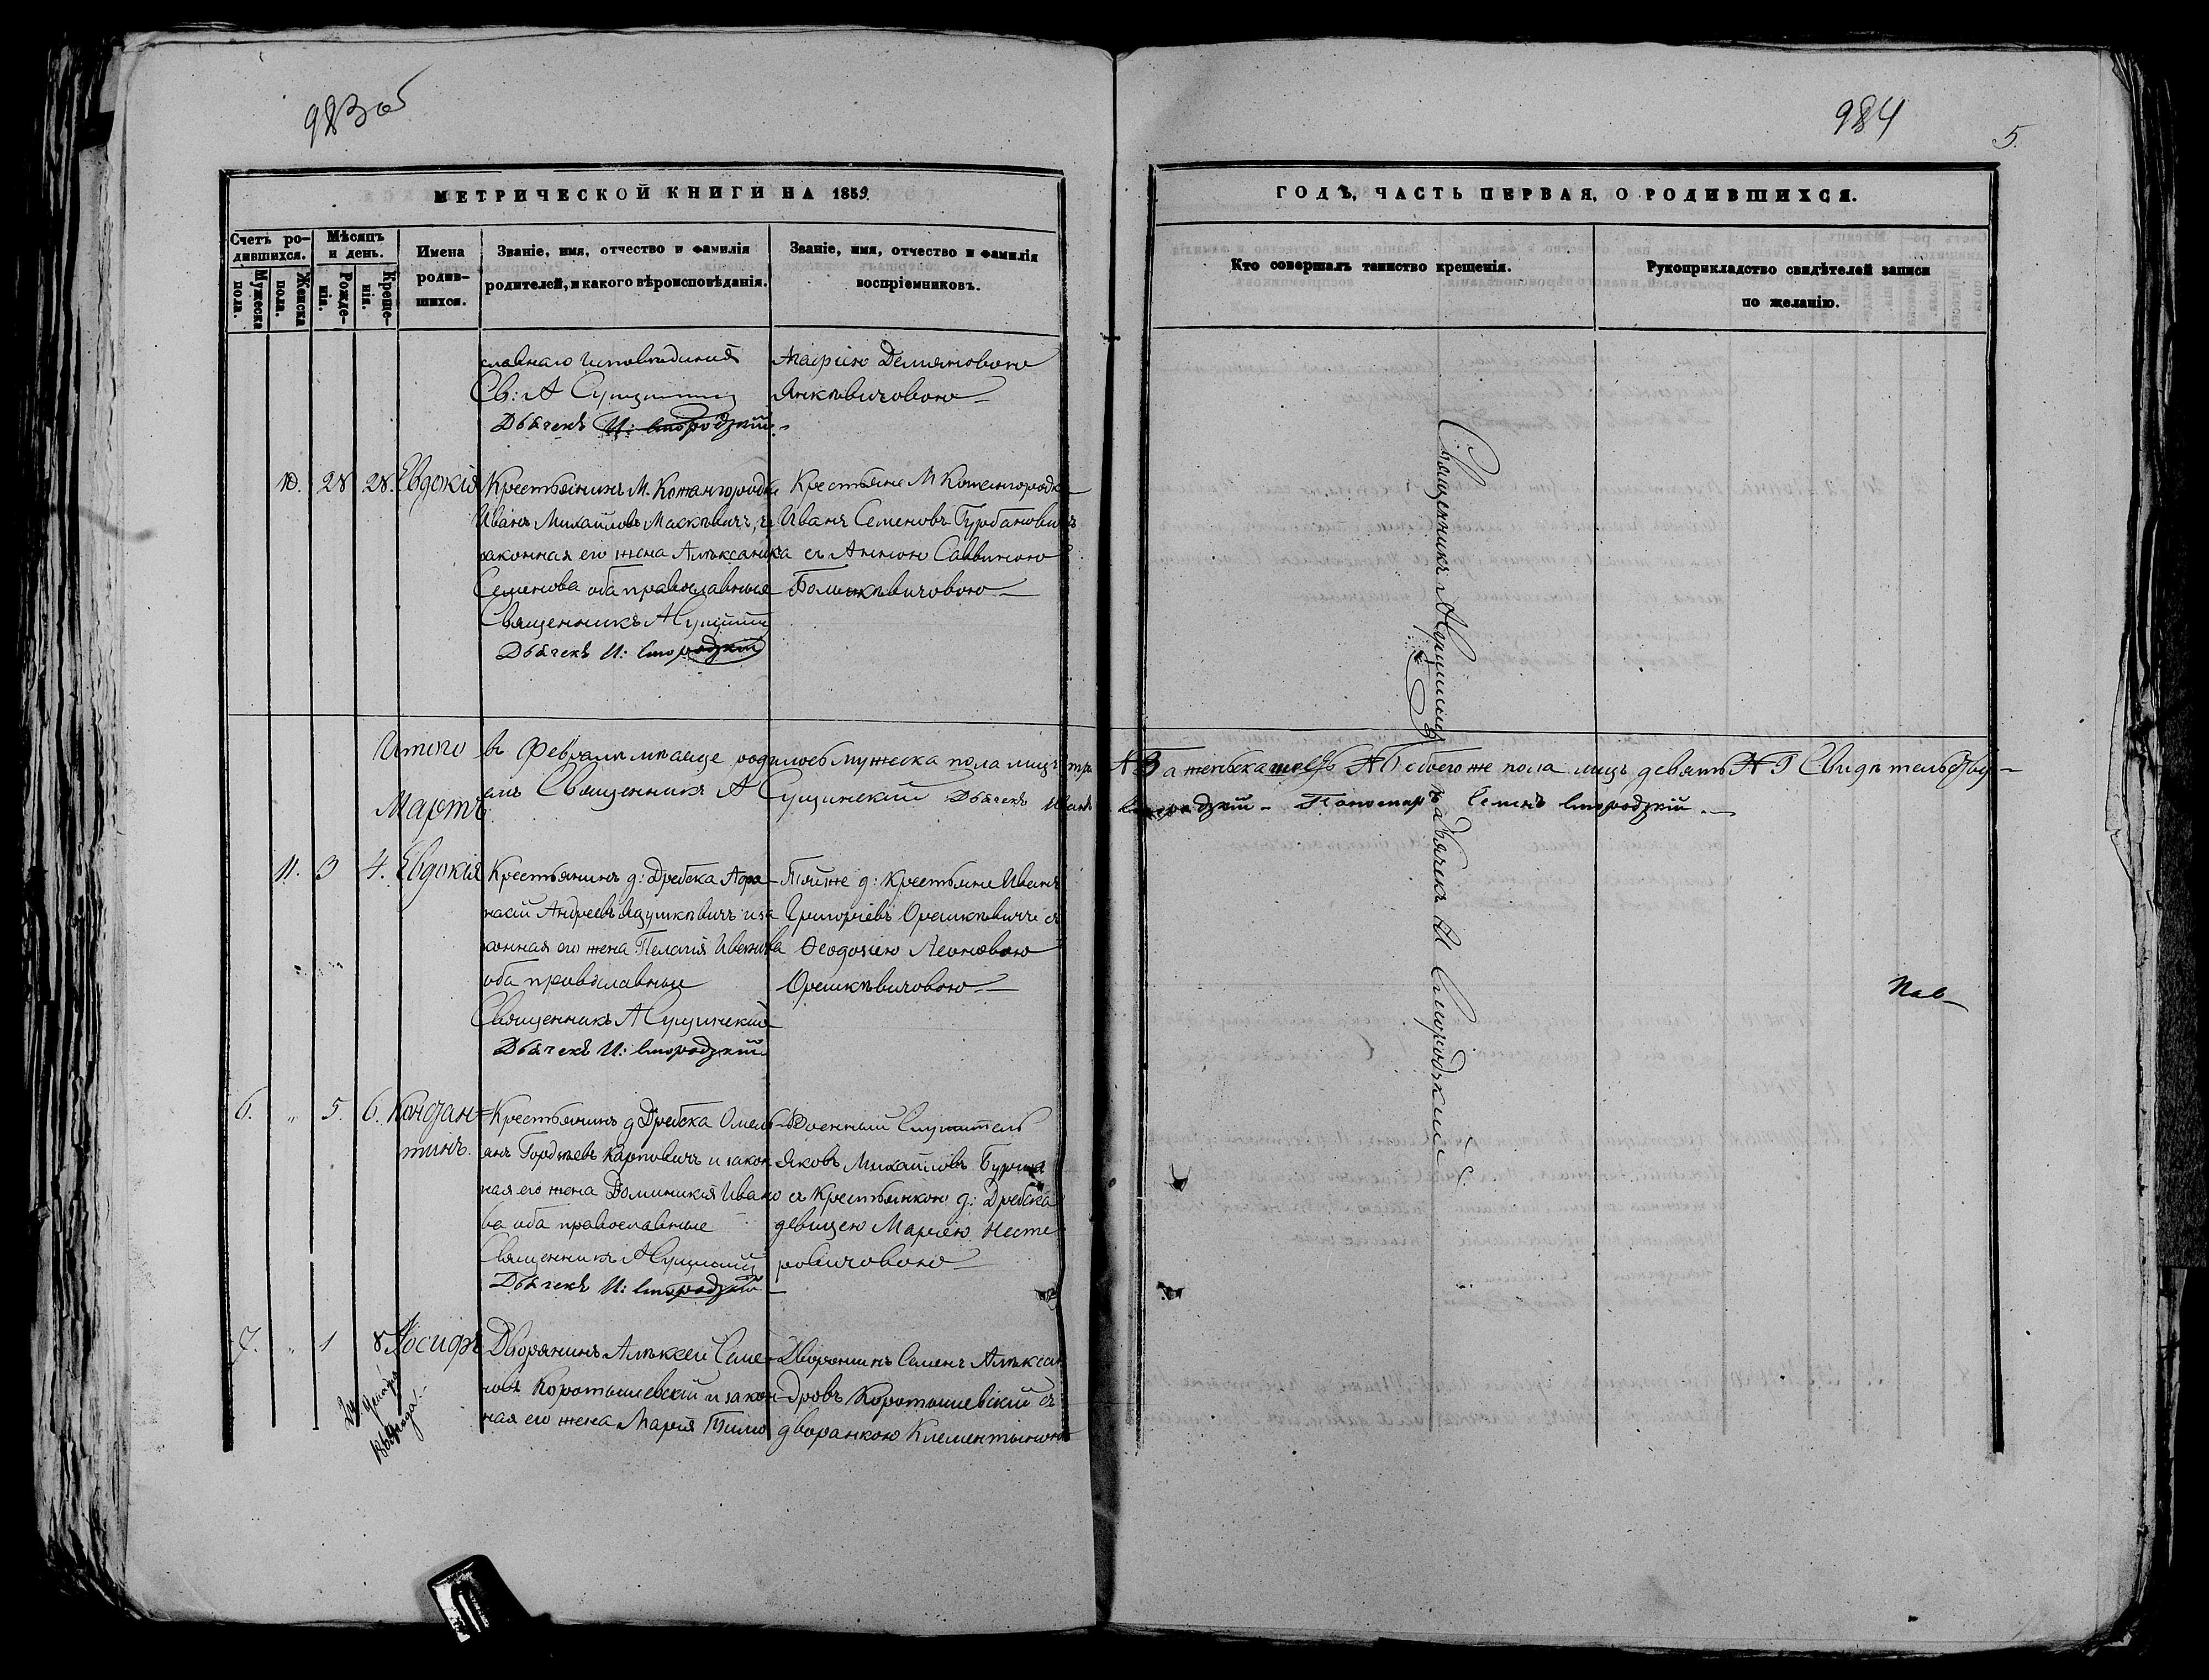 983 об
984
5.
МЕТРИЧЕСКОЙ КНИГИ НА 1859.
ГОДЪ, ЧАСТЬ ПЕРВАЯ, О РОДИВШИХСЯ.
Счетъ ро-
дившихся.
Мужеска
пола.
Женска
пола.
Мѣсяцъ
и день.
Рожде-
нія.
Креще-
нія.
Имена
родив-
шихся.
Званіе, имя, отчество и фамилія
родителей, и какого вѣроисповѣданія.
Званіе, имя, отчество и фамилія
воспріемниковъ.
Кто совершалъ таинство крещенія.
Рукоприкладство свидѣтелей записи
по желанію.
славнаго исповѣданія
Св: А Сущинскій
Дьячекъ И:
Демяновою
Янкѣвичовою
10. 28 28. Евдокія
Крестьянинъ М. Кожангородка
Иванъ Михайловъ Маскѣвичъ, и
законная его жена Алѣксандра
Семенова оба православныя
Священникъ А Сущинскій
Дьячекъ И:
Крестьяне М Кожангородка
Иванъ Семеновъ Гурбановичъ
съ Анною Саввиною
Священникъ А Сущинскій
Итого въ Февралѣ мѣсяце родилось мужеска пола лицъ три А В а женска шесть обоего же пола лицъ девять А Г Свидѣтельству-
емъ Священникъ А Сущинскій Дьячекъ Иванъ Пономарь Семенъ
Мартъ
11. 3 4. Евдокія
Крестьянинъ д: Дребска Афа-
насій Андреевъ и за
конная его жена Пелагія Иванова
оба православныи
Священникъ А Сущинскій
Дьячекъ И:
Тойже д: крестьяне Иванъ
Григоріевъ Орешкѣвичъ съ
Феодосіею Леоновою
Орешкѣвичовою
6. " 5. 6. Констан-
тинъ.
Крестьянинъ д Дребска Омель-
янъ Гордѣевъ Карповичъ и закон
ная его жена Доминикія Ивано
ва оба православные
Священникъ А Сущинскій
Дьячекъ И:
Военный Служитель
Яковъ Михайловъ
съ Крестьянкою д: Дребска
девицею Маріею Несте
ровичовою
7. " 1 8 Іосифъ
Дворянинъ Алѣксей Семе-
новъ Коротышевскій и закон
ная его жена Марія Тимо
Дворянинъ Семенъ Алѣксан
дровъ Коротышевскій съ
дворанкою Клементиною